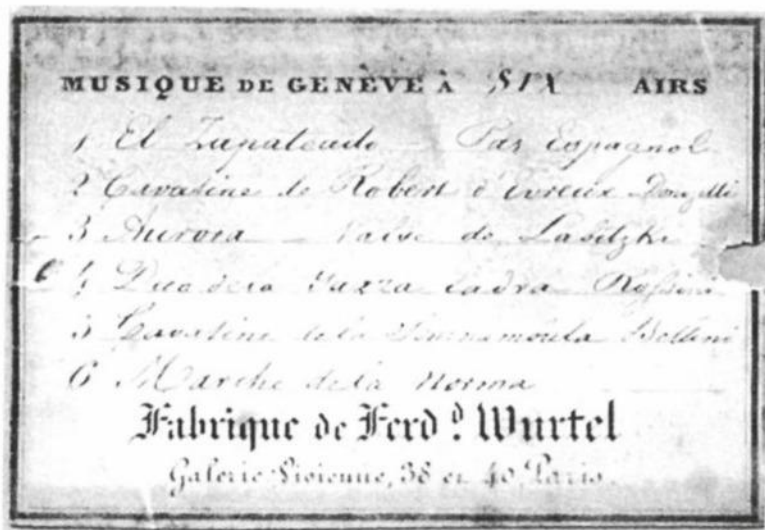 MUSIQUE DE GENÈVE À SIX AIRS
1 El Zapateado — Pas Espagnol
2 Cavatine de Robert d'Evreux Donizetti
3 Aurora — Valse de Labitzki
4 Duo de la Gazza Ladra Rossini
5 Cavatine de la Somnambula Bellini
6 Marche de la Norma
Fabrique de Ferd.d Wurtel
Galerie Vivienne, 38 et 40, Paris.